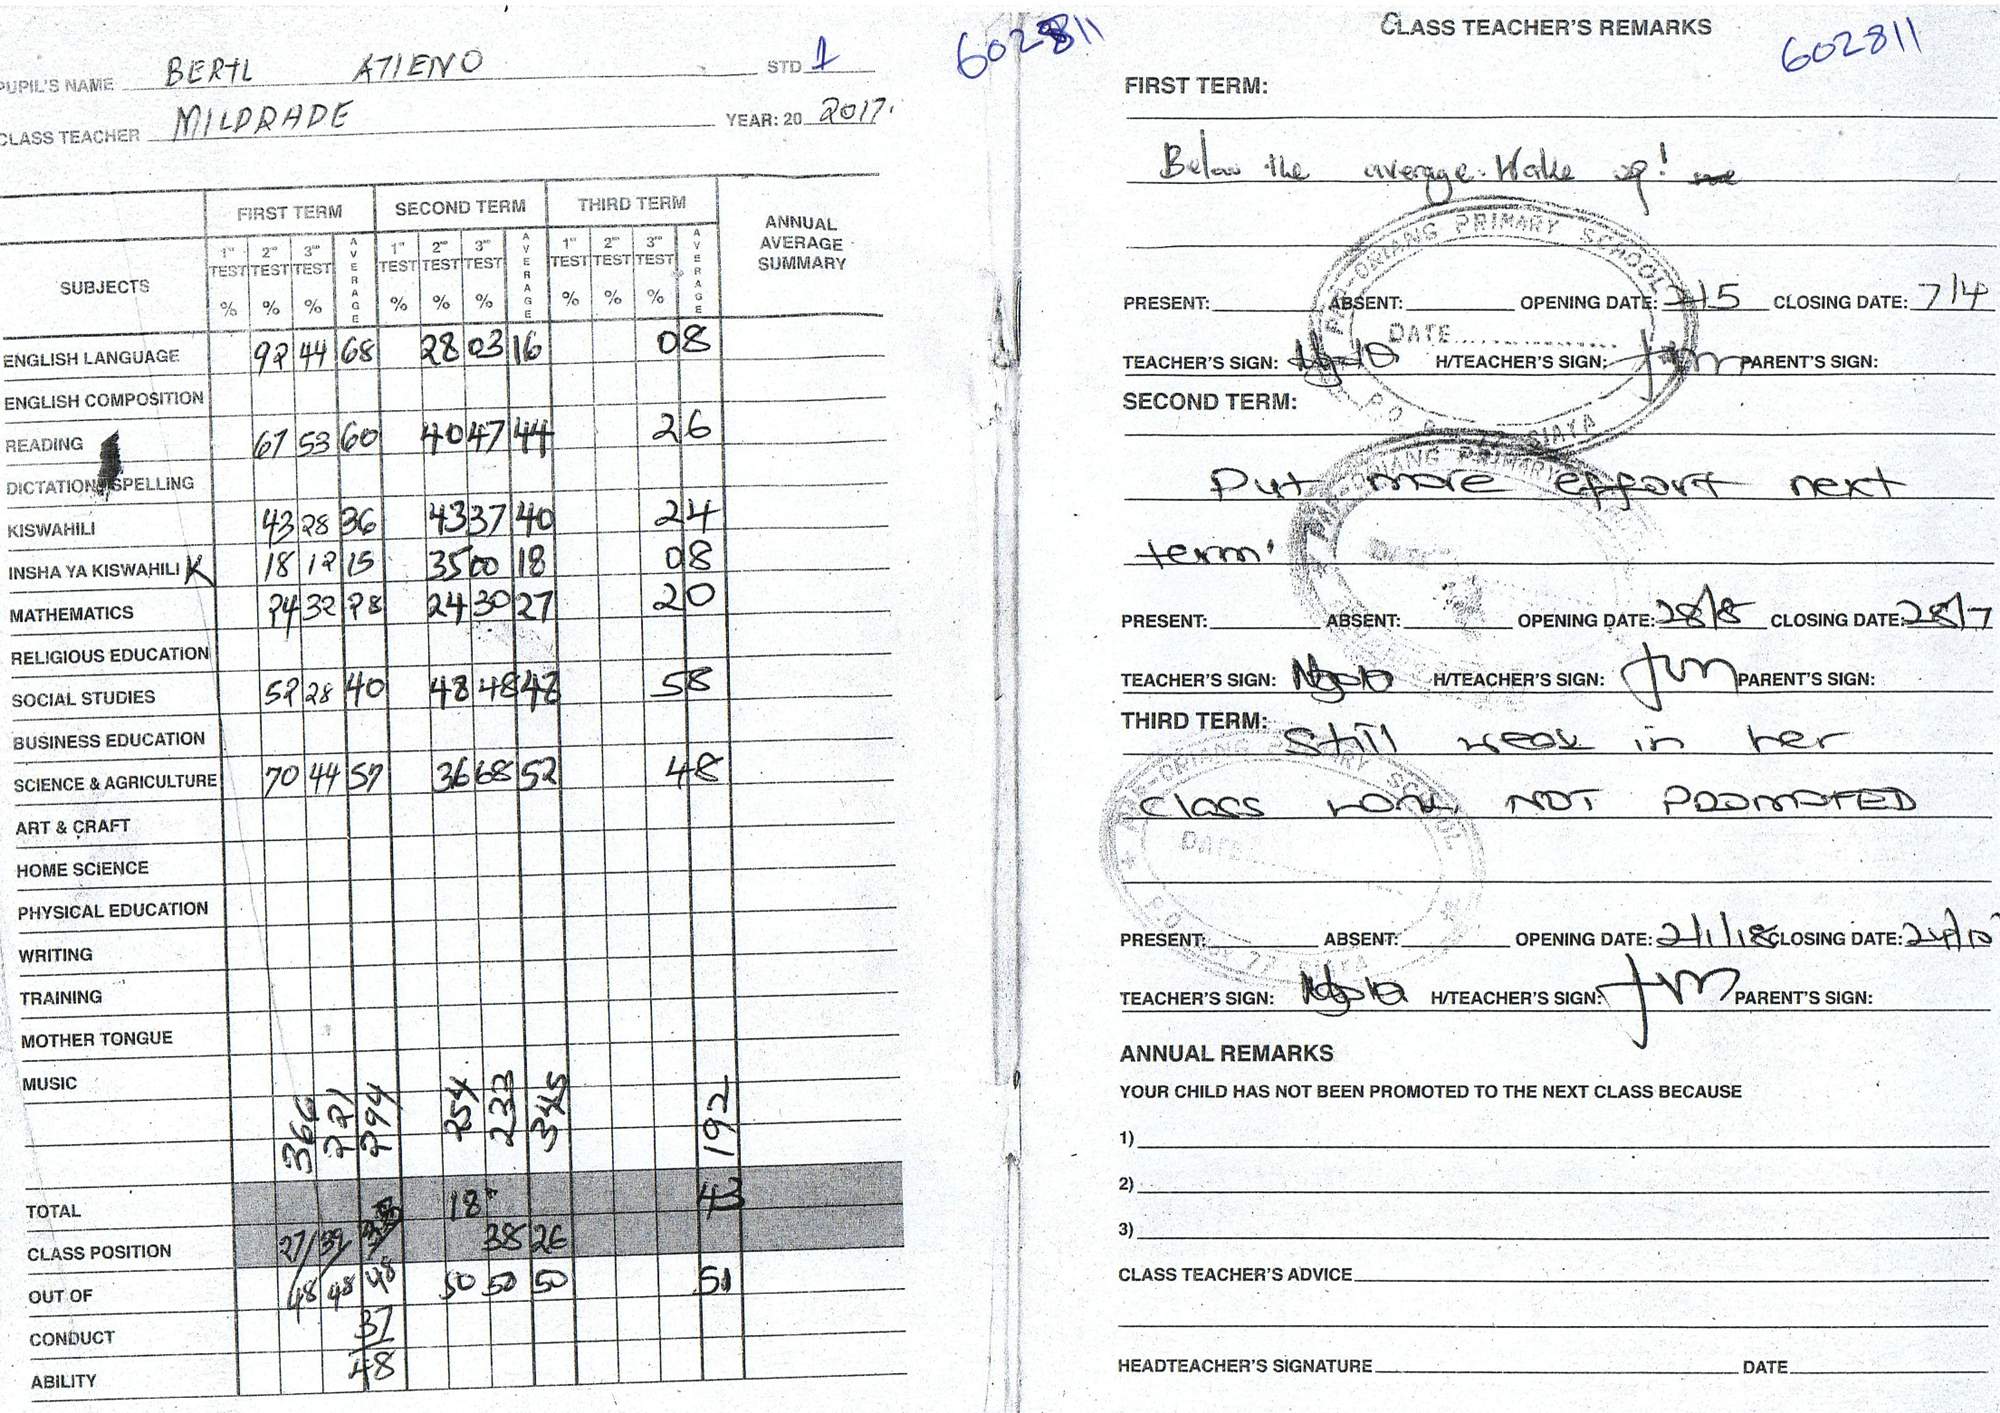 602811
PUPIL'S NAME BERYL ATIENO STD 1
CLASS TEACHER MILDRADE YEAR: 20 2017.
SUBJECTS FIRST TERM SECOND TERM THIRD TERM ANNUAL AVERAGE SUMMARY
1ST TEST % 2ND TEST % 3RD TEST % AVERAGE 1ST TEST % 2ND TEST % 3RD TEST % AVERAGE 1ST TEST % 2ND TEST % 3RD TEST % AVERAGE
ENGLISH LANGUAGE 92 44 68 28 03 16 08
ENGLISH COMPOSITION
READING 67 53 60 40 47 44 26
DICTATION/SPELLING
KISWAHILI 43 28 36 43 37 40 24
INSHA YA KISWAHILI K 18 12 15 35 00 18 08
MATHEMATICS 24 32 28 24 30 27 20
RELIGIOUS EDUCATION
SOCIAL STUDIES 52 28 40 48 48 48 58
BUSINESS EDUCATION
SCIENCE & AGRICULTURE 70 44 57 36 68 52 48
ART & CRAFT
HOME SCIENCE
PHYSICAL EDUCATION
WRITING
TRAINING
MOTHER TONGUE
MUSIC
366 221 294 254 233 192
TOTAL 18 43
CLASS POSITION 27/ 39/ 38 26
OUT OF 48 48 48 50 50 50 51
CONDUCT 37
ABILITY 48
CLASS TEACHER'S REMARKS
602811
FIRST TERM:
Below the average. Wake up!
PRIMARY SCHOOL
PRESENT: ABSENT: OPENING DATE: 2/5 CLOSING DATE: 7/4
DATE
TEACHER'S SIGN: H/TEACHER'S SIGN: PARENT'S SIGN:
P.O SIAYA
SECOND TERM:
PRIMARY
Put more effort next
term.
PRESENT: ABSENT: OPENING DATE: 28/8 CLOSING DATE: 28/7
TEACHER'S SIGN: H/TEACHER'S SIGN: PARENT'S SIGN:
THIRD TERM: Still weak in her
class work, NOT PROMOTED
SCHOOL
DATE
PRESENT: ABSENT: OPENING DATE: 2/1/18 CLOSING DATE: 24/10
TEACHER'S SIGN: H/TEACHER'S SIGN: PARENT'S SIGN:
ANNUAL REMARKS
YOUR CHILD HAS NOT BEEN PROMOTED TO THE NEXT CLASS BECAUSE
1)
2)
3)
CLASS TEACHER'S ADVICE
HEADTEACHER'S SIGNATURE DATE